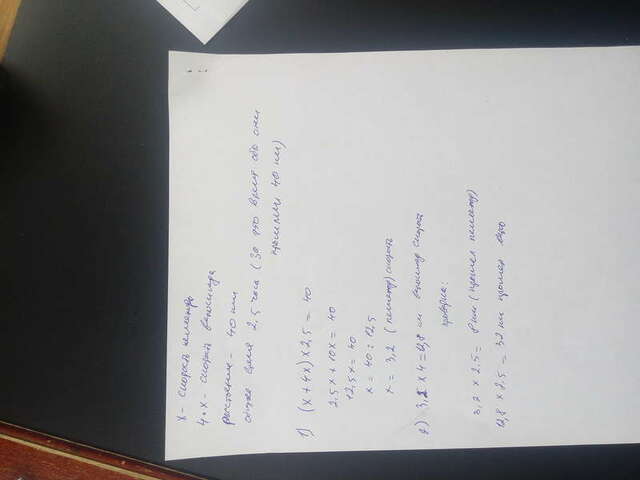 x - скорость пешехода
4•x - скорость велосипеда
расстояние - 40 км
общее время 2,5 часа (за это время оба они
прошли 40 км)
1) (x + 4x) × 2,5 = 40
2,5x + 10x = 40
12,5x = 40
x = 40 : 12,5
x = 3,2 (пешеход) скорость
2) 3,2 × 4 = 12,8 км велосипед скорость
проверка:
3,2 × 2,5 = 8 км (прошел пешеход)
12,8 × 2,5 = 32 км прошел